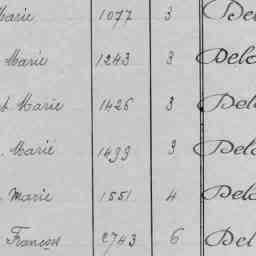 Marie 1077 3 Del
Marie 1243 3 Delc
t Marie 1426 3 Delc
. Marie 1499 3 Delc
Marie 1551 4 Delc
François 2743 6 Del